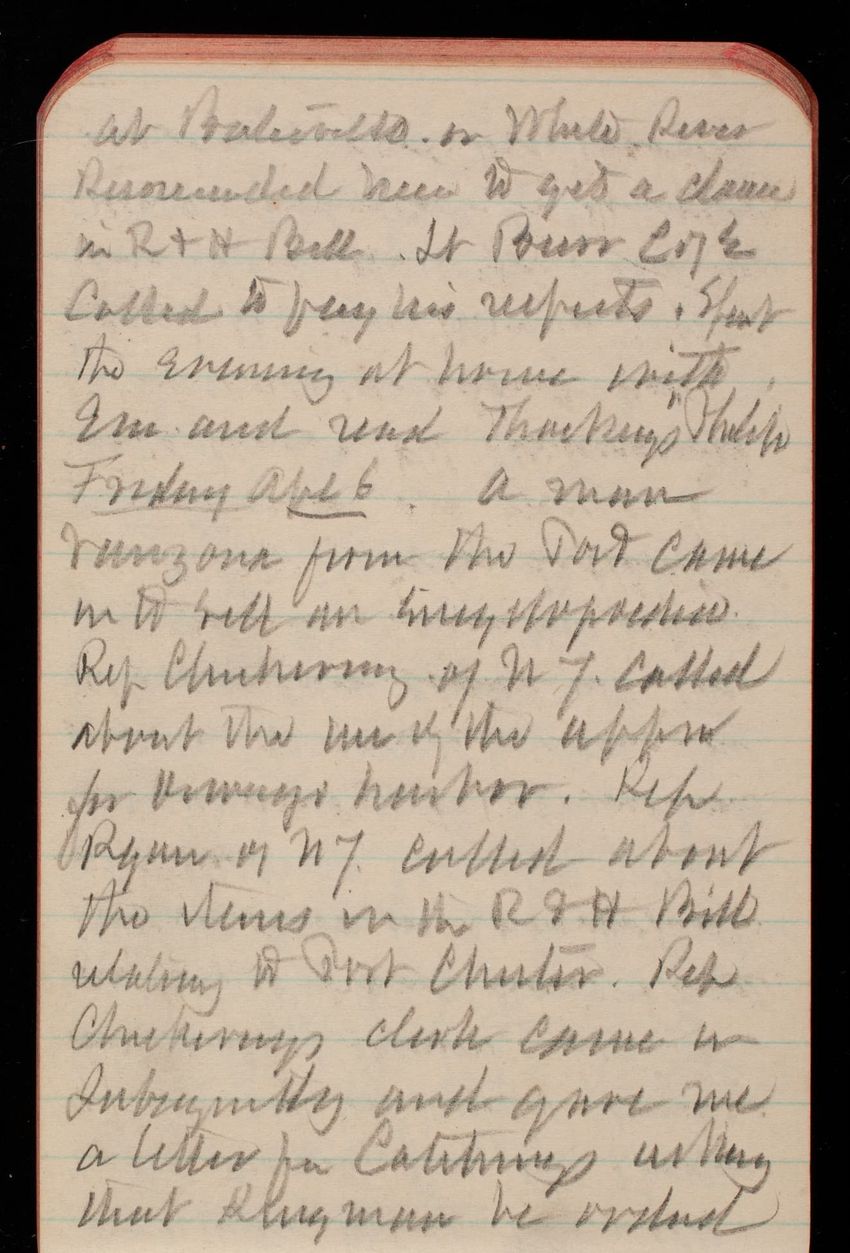 at Batesville or White River
Recommended him to get a clause
in R & H Bill. Lt Burr C of E
Called to pay his respects. Spent
the evening at home with
Em and read Thackerays "Philip
Friday Apl 6. A man
from the Post came
in to sell an Encyclopaedia
Rep Chickering of N Y. called
about the use of the appn
for Oswego harbor. Rep
Ryan of N Y called about
the items in the R & H Bill
relating to Port Chester. Rep
Chickerings clerk came in
Subsequently and gave me
a letter for asking
that Kingman be ordered